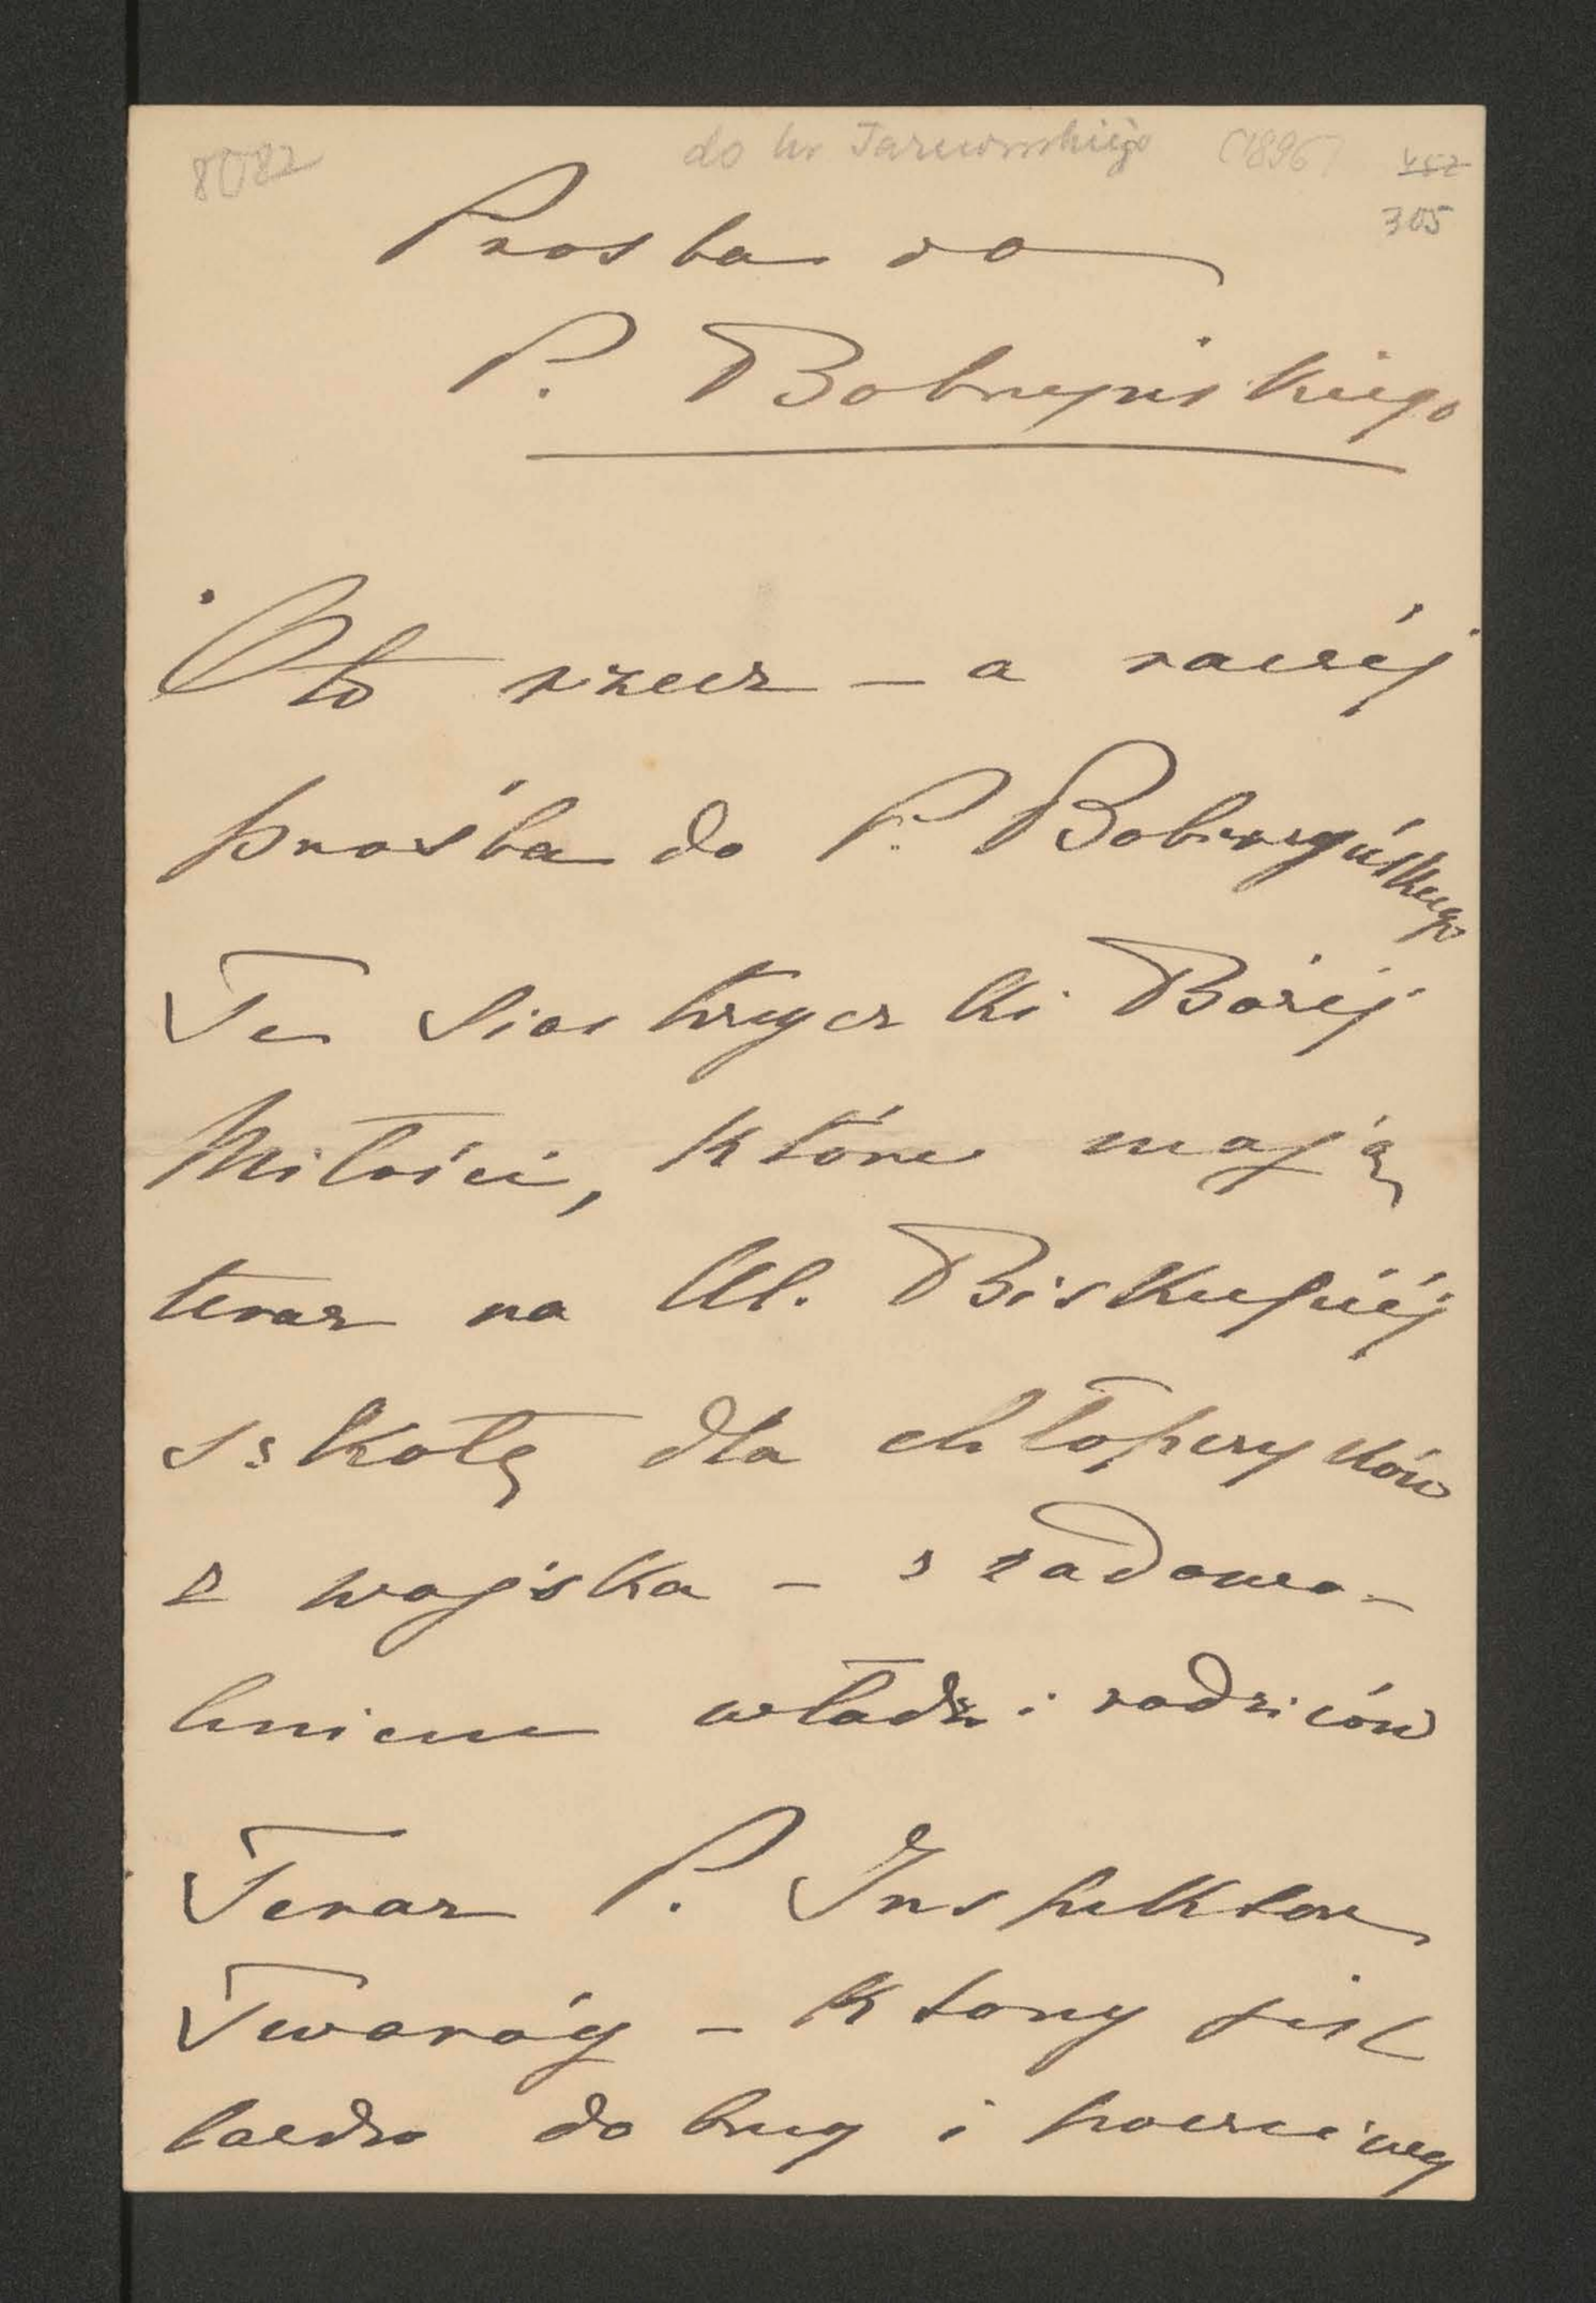 8082 do hr Tarnowskiego (1896)
305
Prosba do
P. Bobrzyńskiego
Oto rzecz – a raczéj
prośba do P. Bobrzyńskiego
Te Siostrzyczki Bożéj
Miłości, które mają
teraz na Ul. Biskupiéj
szkołę dla chłopczyków
z wojska – z zadowo-
lniem władz i rodziców
Teraz P. Inspektor
Twaróg – który jest
bardzo dobry i poczciwy